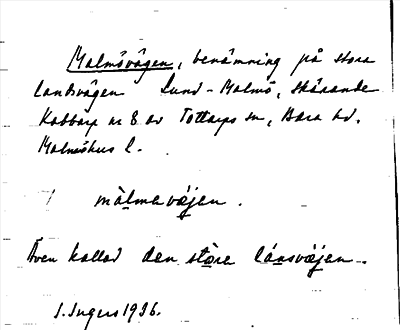 Malmövägen, benämning på stora
landsvägen Lund-Malmö, skärande
Kabbarp nr 8 av Tottarps sn, Bara hd.
Malmöhus l.
màlmavæjen.
Även kallad den stòre lánsvæjen.
I. Ingers 1936.